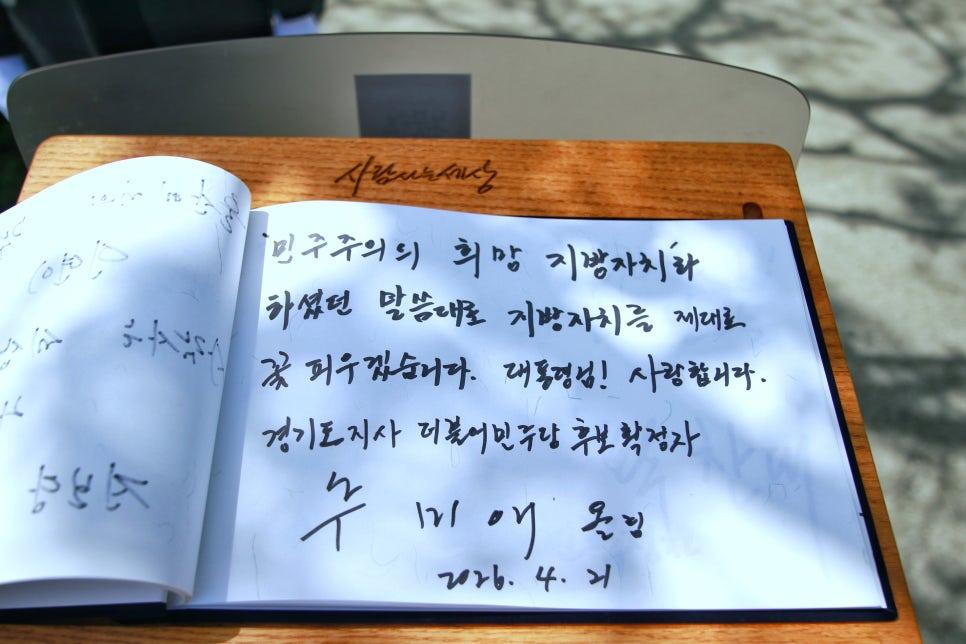 사람사는세상
'민주주의의 희망 지방자치'라
하셨던 말씀대로 지방자치를 제대로
꽃 피우겠습니다. 대통령님! 사랑합니다.
경기도지사 더불어민주당 후보 확정자
추미애 올림
2026. 4. 21